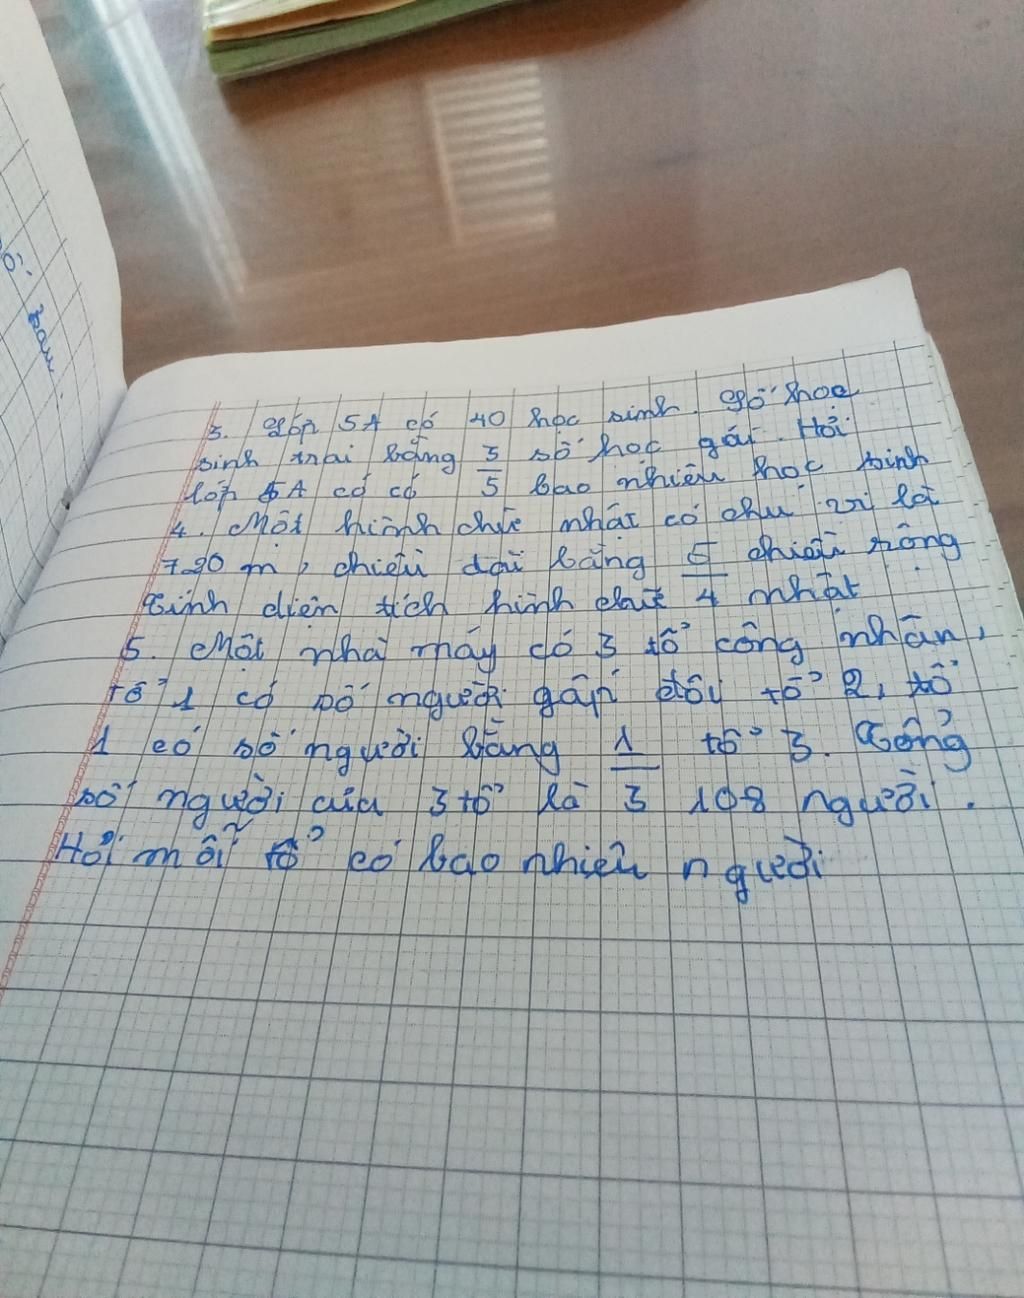 3. Lớp 5A có 40 học sinh. Số học
sinh trai bằng 3/5 số học gái. Hỏi
lớp 5A có có bao nhiêu học sinh
4. Một hình chữ nhất có chu vi là
720 m, chiều dài bằng 5/4 chiều rộng
Tính diện tích hình chữ nhât
5. Một nhà máy có 3 tổ công nhân,
tổ 1 có số người gấp đôi tổ 2, tổ
1 có số người bằng 1/3 tổ 3. Tổng
số người của 3 tổ là 108 người.
Hỏi mỗi tổ có bao nhiêu người